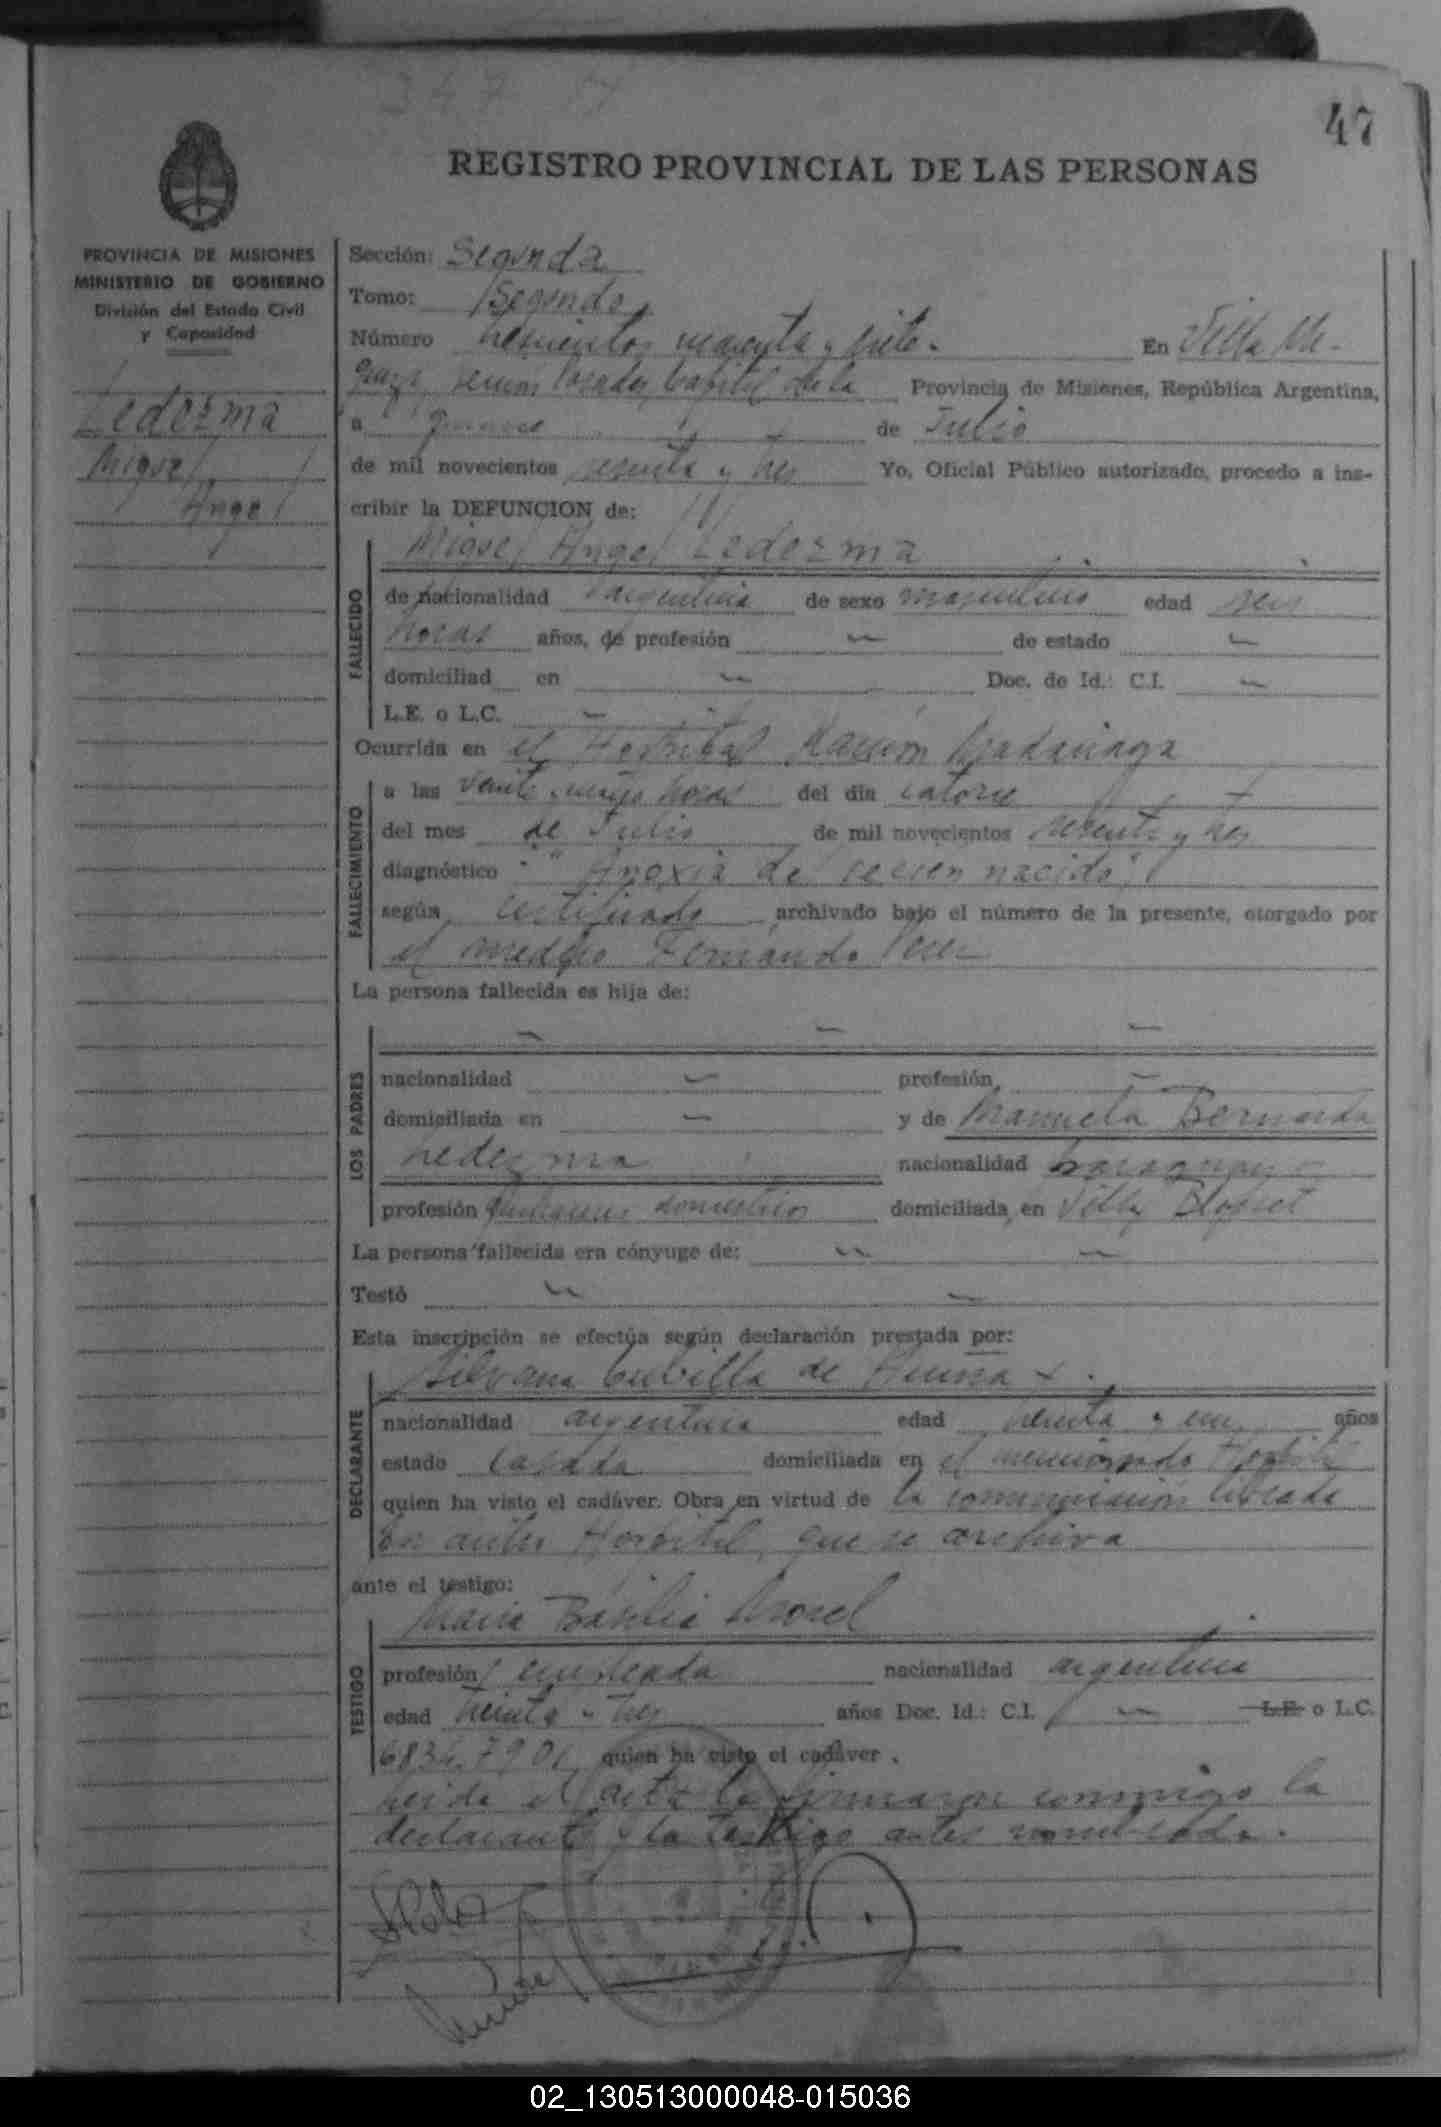 347
47
REGISTRO PROVINCIAL DE LAS PERSONAS
PROVINCIA DE MISIONES
MINISTERIO DE GOBIERNO
División del Estado Civil
y Capacidad
Ledezma
Miguel
Angel
Sección: Segunda
Tomo: Segundo
Número trescientos cuarenta y siete. En Villa
Posadas, Capital de la Provincia de Misiones, República Argentina,
a quince de Julio
de mil novecientos sesenta y tres Yo, Oficial Público autorizado, procedo a ins-
cribir la DEFUNCION de:
Miguel Angel Ledezma
FALLECIDO
de nacionalidad argentina de sexo masculino edad seis
horas años, de profesión — de estado —
domiciliad en — Doc. de Id.: C.I. —
L.E. o L.C. —
Ocurrida en el Hospital Ramón Madariaga
FALLECIMIENTO
a las veinte horas del día catorce
del mes de Julio de mil novecientos sesenta y tres
diagnóstico "Anoxia de recien nacido"
según certificado archivado bajo el número de la presente, otorgado por
el medico Fernando
La persona fallecida es hija de:
— — —
LOS PADRES
nacionalidad — profesión —
domiciliada en — y de Manuela Bernarda
Ledezma nacionalidad paraguaya
profesión quehaceres domesticos domiciliada en Villa Blosset
La persona fallecida era cónyuge de: — —
Testó — —
Esta inscripción se efectúa según declaración prestada por:
Silvana Cubilla de
DECLARANTE
nacionalidad argentina edad treinta y un años
estado casada domiciliada en el mencionado Hospital
quien ha visto el cadáver. Obra en virtud de la comunicación librada
en antes Hospital, que se archiva
ante el testigo:
Maria Basilia Morel
TESTIGO
profesión empleada nacionalidad argentina
edad treinta y tres años Doc. Id.: C.I. — L.E. o L.C.
6834.790 quien ha visto el cadáver.
Leida el acta la firmaron conmigo la
declarante y la testigo antes nombrada.
02_130513000048-015036